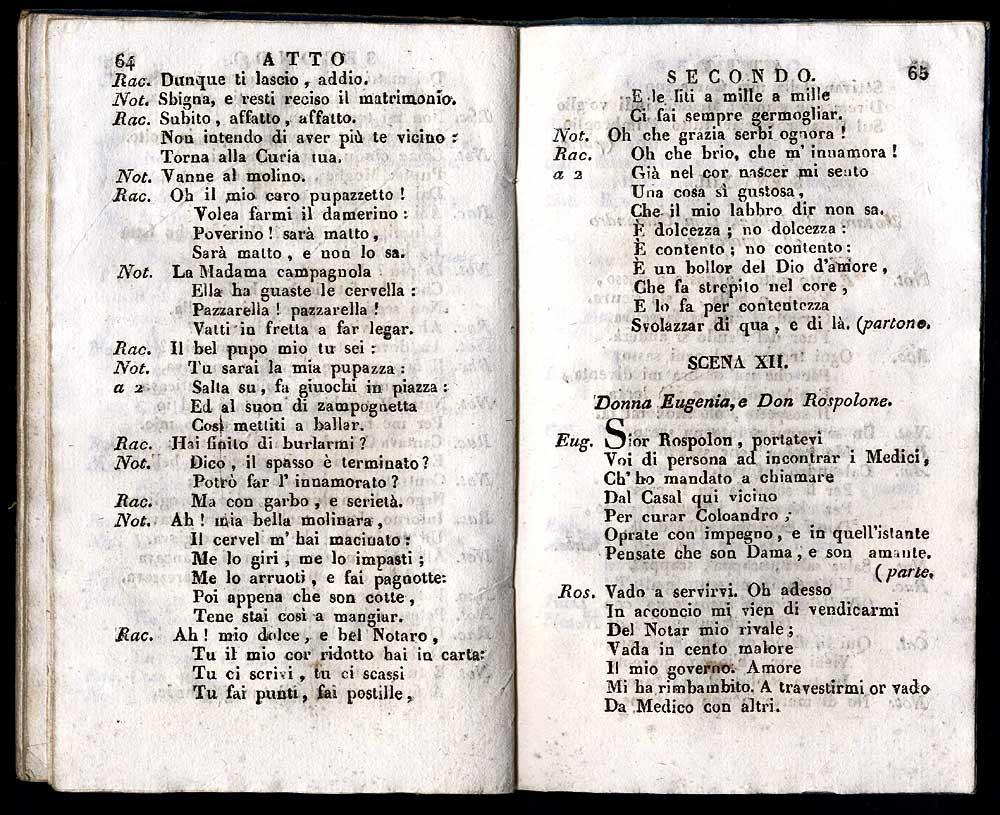 64 ATTO
Rac. Dunque ti lascio, addio.
Not. Sbigna, e resti reciso il matrimonio.
Rac. Subito, affatto, affatto.
Non intendo di aver più te vicino:
Torna alla Curia tua.
Not. Vanne al molino.
Rac. Oh il mio caro pupazzetto!
Volea farmi il damerino:
Poverino! sarà matto,
Sarà matto, e non lo sa.
Not. La Madama campagnola
Ella ha guaste le cervella:
Pazzarella! pazzarella!
Vatti in fretta a far legar.
Rac. Il bel pupo mio tu sei:
Not. Tu sarai la mia pupazza:
a 2 Salta su, fa giuochi in piazza:
Ed al suon di zampognetta
Così mettiti a ballar.
Rac. Hai finito di burlarmi?
Not. Dico, il spasso è terminato?
Potrò far l' innamorato?
Rac. Ma con garbo, e serietà.
Not. Ah! mia bella molinara,
Il cervel m' hai macinato:
Me lo giri, me lo impasti;
Me lo arruoti, e fai pagnotte:
Poi appena che son cotte,
Tene stai così a mangiar.
Rac. Ah! mio dolce, e bel Notaro,
Tu il mio cor ridotto hai in carta:
Tu ci scrivi, tu ci scassi
Tu fai punti, fai postille,
SECONDO. 65
E le liti a mille a mille
Ci fai sempre germogliar.
Not. Oh che grazia serbi ognora!
Rac. Oh che brio, che m' innamora!
a 2 Già nel cor nascer mi sento
Una cosa sì gustosa,
Che il mio labbro dir non sa.
È dolcezza; no dolcezza:
È contento; no contento:
È un bollor del Dio d'amore,
Che fa strepito nel core,
E lo fa per contentezza
Svolazzar di qua, e di là. (partono.
SCENA XII.
Donna Eugenia, e Don Rospolone.
Eug. Sior Rospolon, portatevi
Voi di persona ad incontrar i Medici,
Ch' ho mandato a chiamare
Dal Casal qui vicino
Per curar Coloandro;
Oprate con impegno, e in quell'istante
Pensate che son Dama, e son amante.
(parte.
Ros. Vado a servirvi. Oh adesso
In acconcio mi vien di vendicarmi
Del Notar mio rivale;
Vada in cento malore
Il mio governo. Amore
Mi ha rimbambito. A travestirmi or vado
Da Medico con altri.